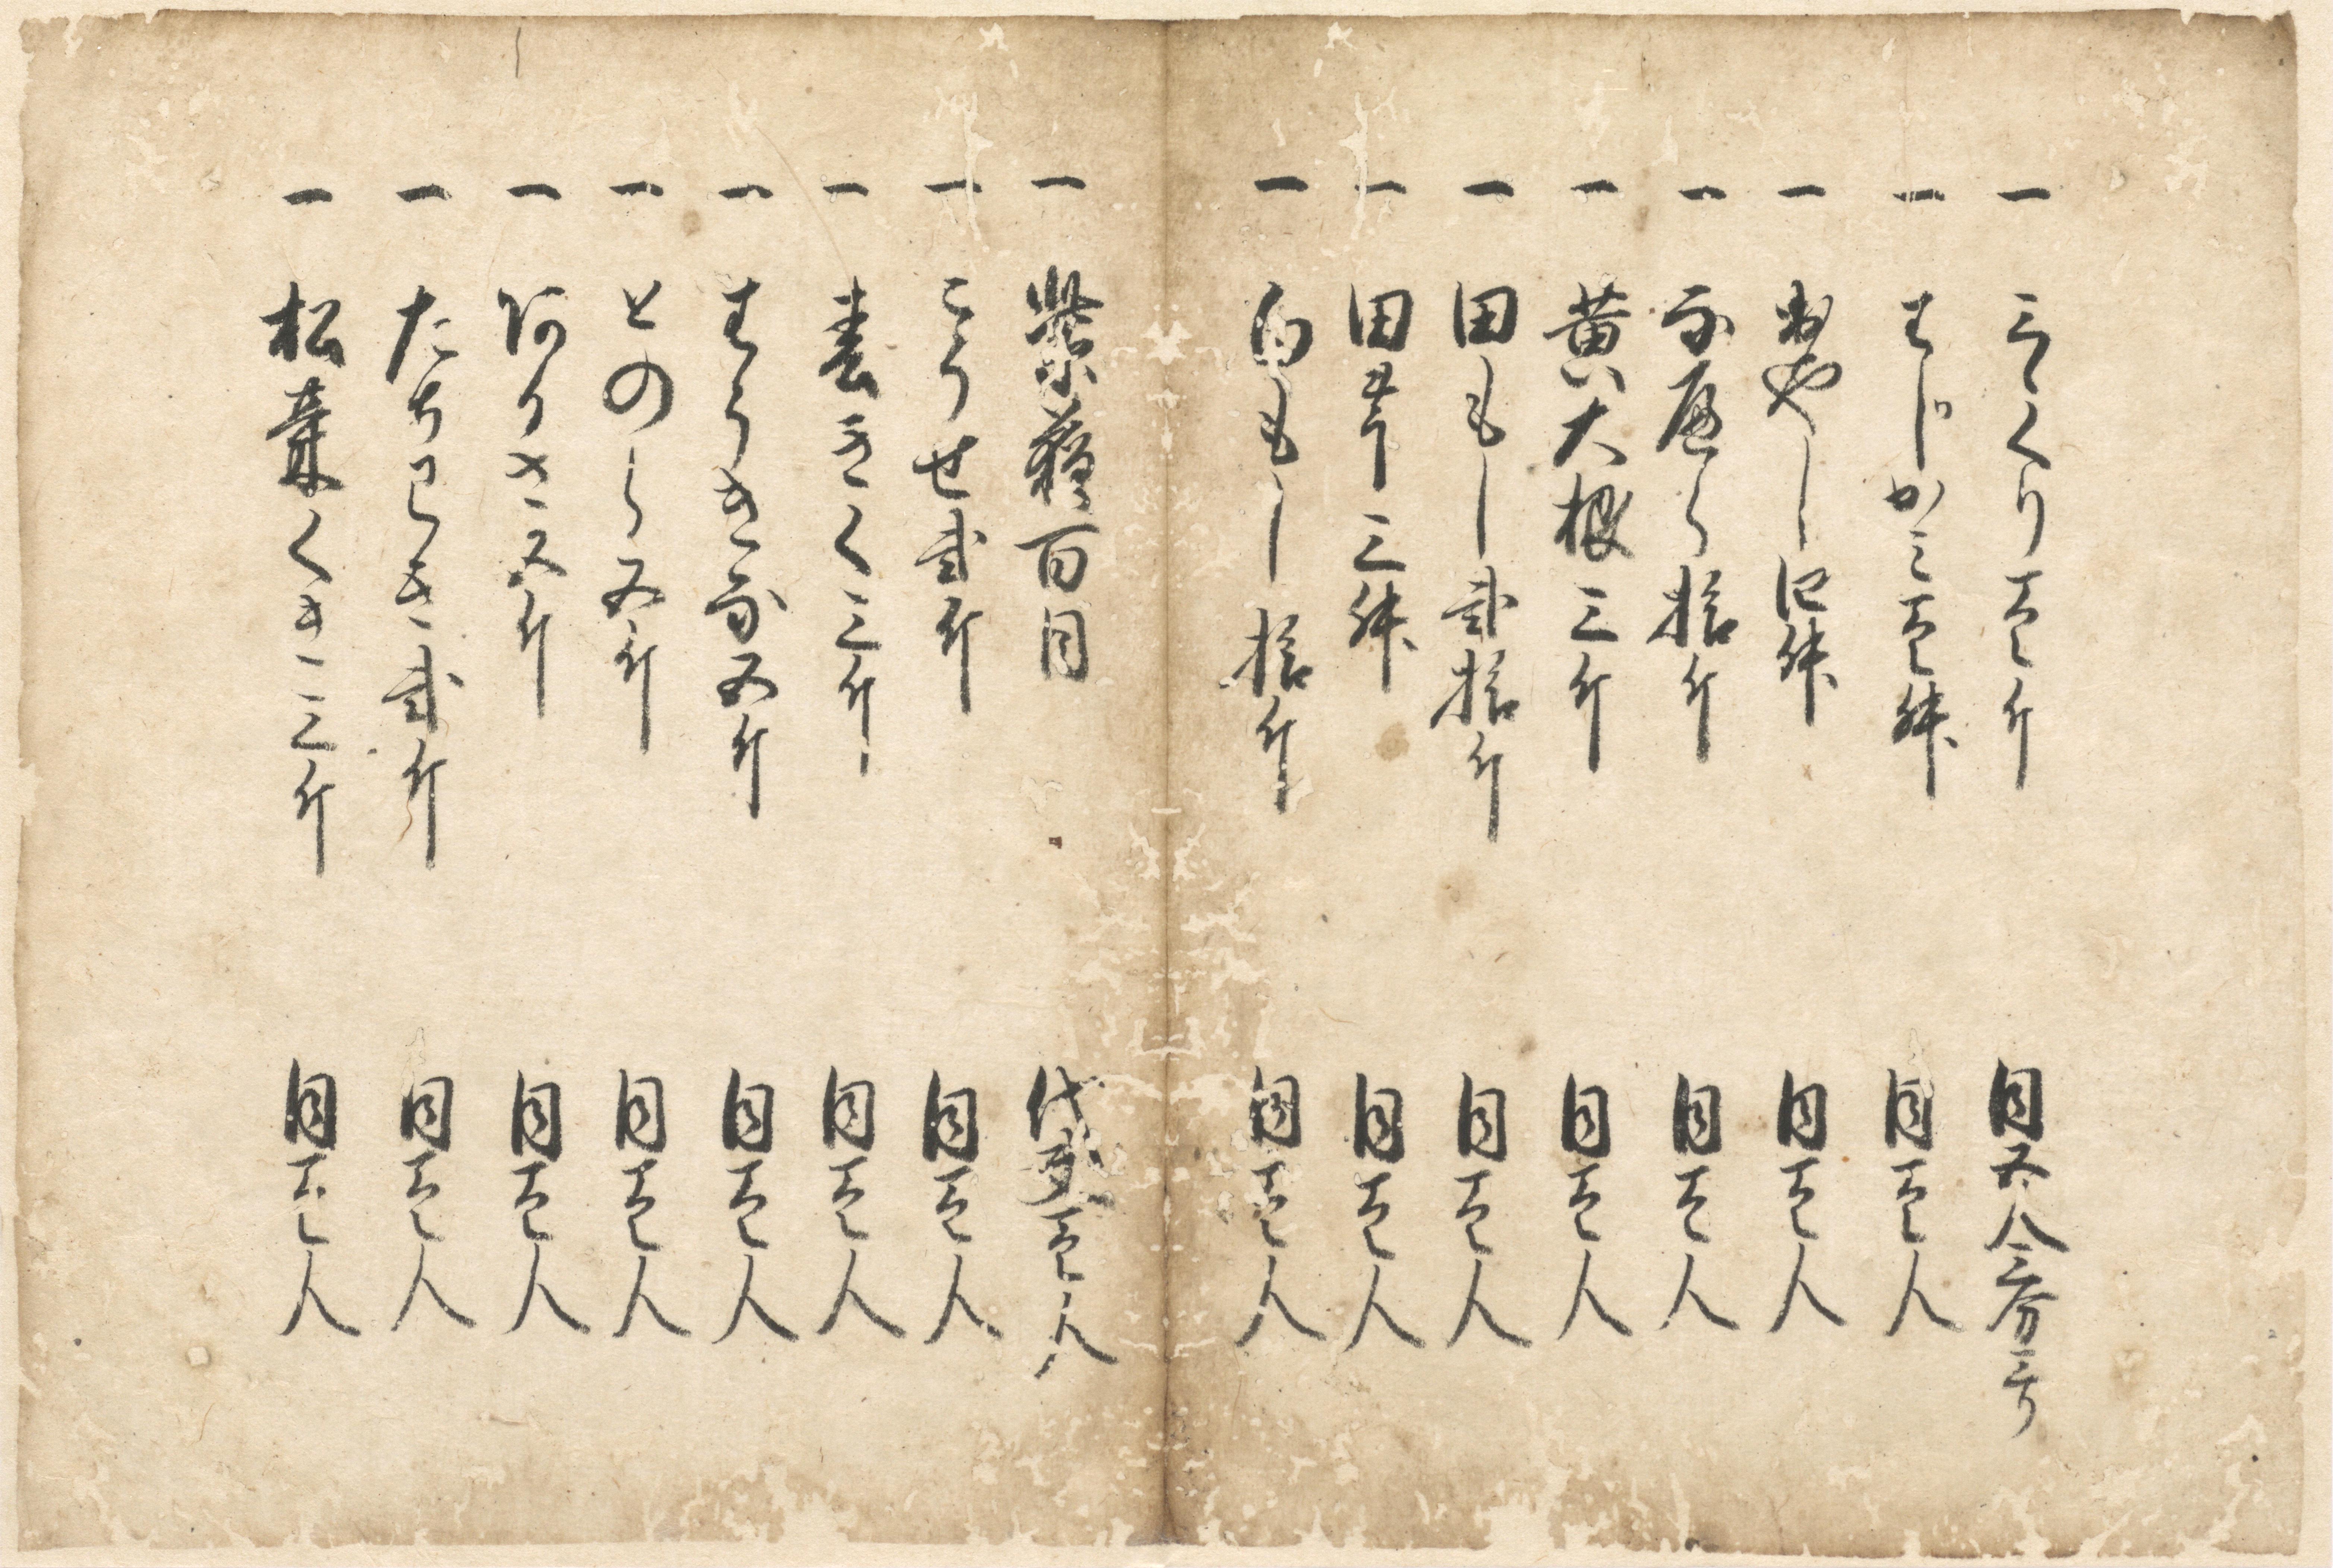 一 三くり壱斤 同五
一 はじかミ壱舛 同壱人
一 やし四舛 同壱人
一 ら拾斤 同壱人
一 黄大根三斤 同壱人
一 田もし弐拾斤 同壱人
一 田芋三舛 同壱人
一 もし拾斤 同壱人
一 紫蘓百目 代夫壱人
一 こうせ弐斤 同壱人
一 春きく三斤 同壱人
一 はうきな五斤 同壱人
一 とのし五斤 同壱人
一 阿うさ五斤 同壱人
一 たちわき弐斤 同壱人
一 松葉くき三斤 同壱人